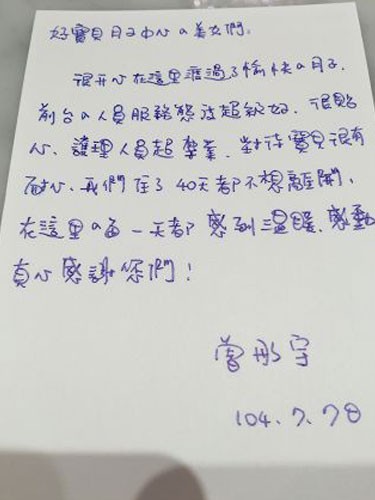 好寶貝月子中心的美女們,
很開心在這里渡過了愉快的月子,
前台的人員服務態度超級好,很貼
心、護理人員超專業,對待寶貝很有
耐心,我們住了40天都不想離開,
在這里的每一天都感到溫暖、感動
真心感謝您們!
曾彤宇
104.7.28